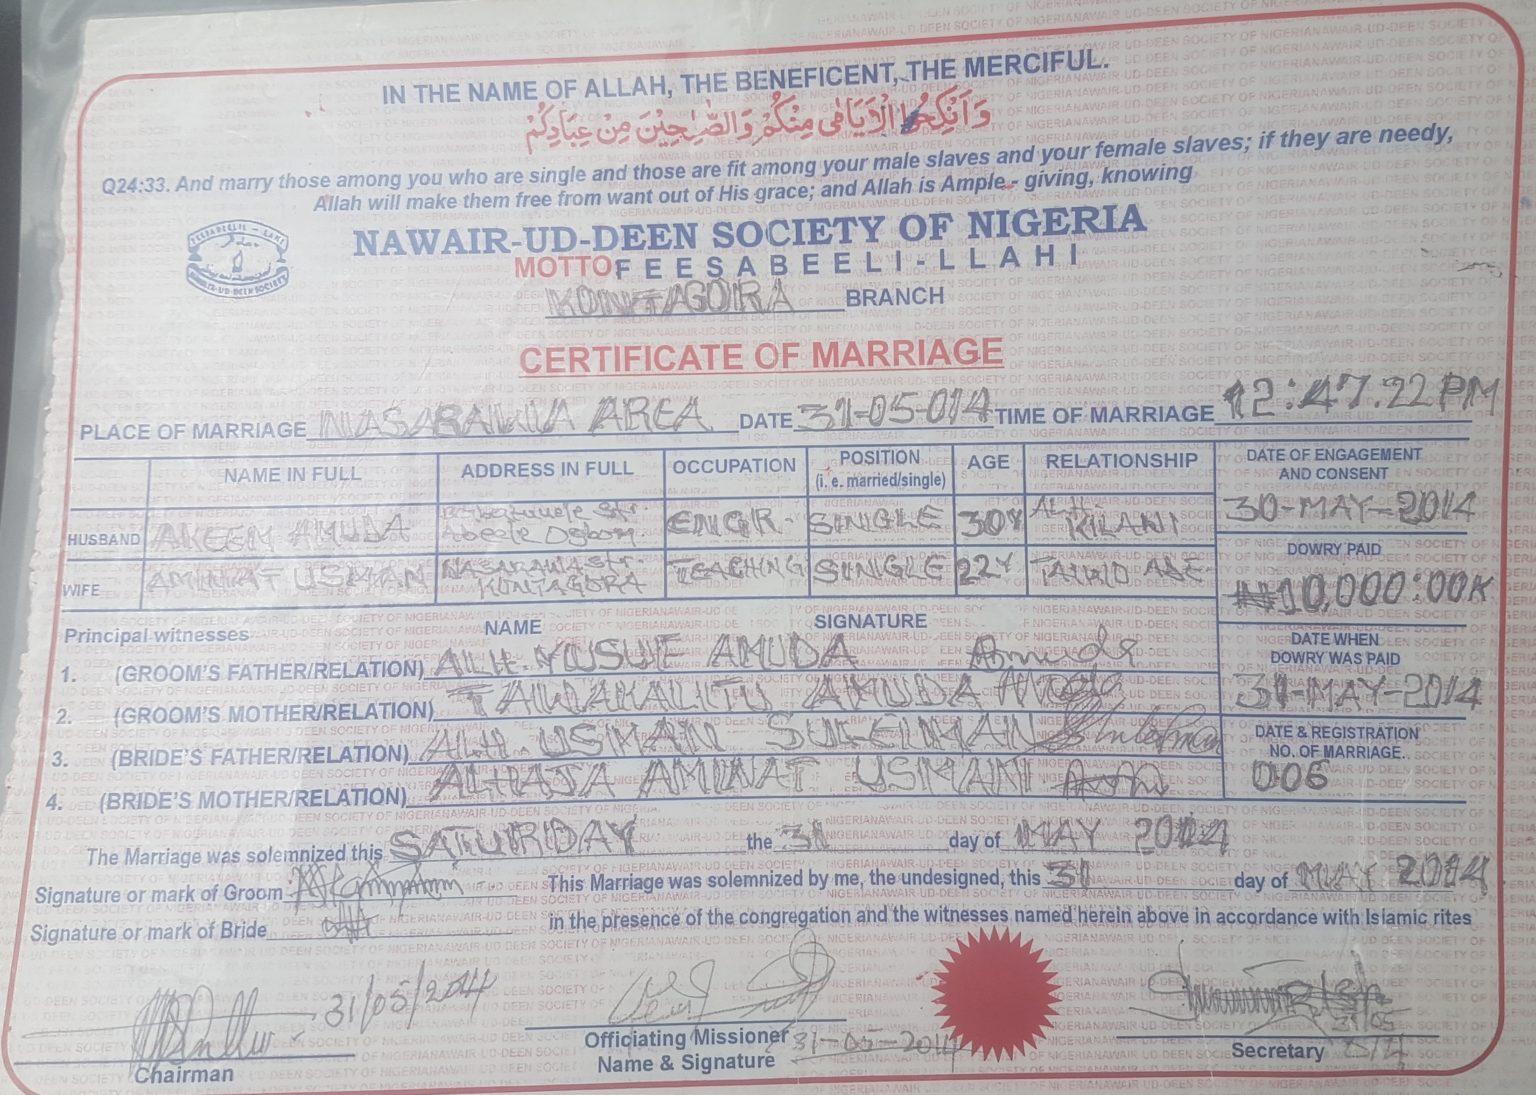 IN THE NAME OF ALLAH, THE BENEFICENT, THE MERCIFUL.
وَاَنْكِحُوا الْاَيَامٰى مِنْكُمْ وَالصّٰلِحِيْنَ مِنْ عِبَادِكُمْ
Q24:33. And marry those among you who are single and those are fit among your male slaves and your female slaves; if they are needy,
Allah will make them free from want out of His grace; and Allah is Ample - giving, knowing
NAWAIR-UD-DEEN SOCIETY OF NIGERIA
MOTTO FEESABEELI-LLAHI
KONTAGORA BRANCH
CERTIFICATE OF MARRIAGE
PLACE OF MARRIAGE NASARAWA AREA DATE 31-05-014 TIME OF MARRIAGE 12:47:22 PM
NAME IN FULL ADDRESS IN FULL OCCUPATION POSITION (i. e. married/single) AGE RELATIONSHIP
HUSBAND AKEEM AMUDA Str. Abeele Osbom ENGR. SINGLE 30Y ALH. KILANI
WIFE AMINAT USMAN NASARAWA Str. KONTAGORA TEACHING SINGLE 22Y
DATE OF ENGAGEMENT AND CONSENT
30-MAY-2014
DOWRY PAID
₦10,000:00K
DATE WHEN DOWRY WAS PAID
31-MAY-2014
DATE & REGISTRATION NO. OF MARRIAGE.
006
Principal witnesses NAME SIGNATURE
1. (GROOM'S FATHER/RELATION) ALH. YUSUF AMUDA Amuda
2. (GROOM'S MOTHER/RELATION) TAWAKALITU AMUDA
3. (BRIDE'S FATHER/RELATION) ALH. USMAN SULEIMAN
4. (BRIDE'S MOTHER/RELATION) ALHAJA AMINAT USMAN
The Marriage was solemnized this SATURDAY the 31 day of MAY 2014
Signature or mark of Groom
This Marriage was solemnized by me, the undesigned, this 31 day of MAY 2014
Signature or mark of Bride
in the presence of the congregation and the witnesses named herein above in accordance with Islamic rites
31/05/2014
Chairman
Officiating Missioner 31-05-2014
Name & Signature
31/05
Secretary